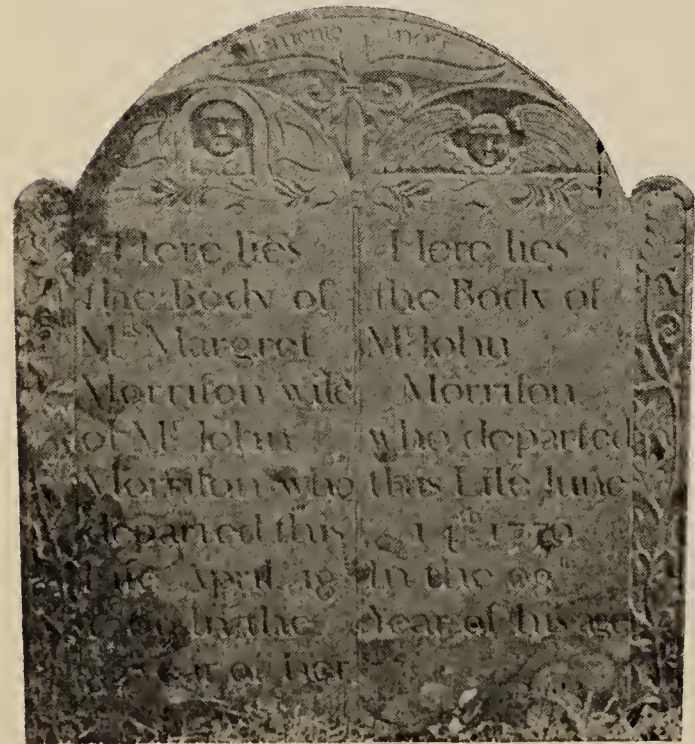 Memento mori
Here lies
the Body of
Mrs Margret
Morriſon wife
of Mr John
Morriſon who
departed this
Life April 18
In the
Year of her
Here lies
the Body of
Mr John
Morriſon
who departed
this Life June
14th 1770
In the 69th
Year of his age